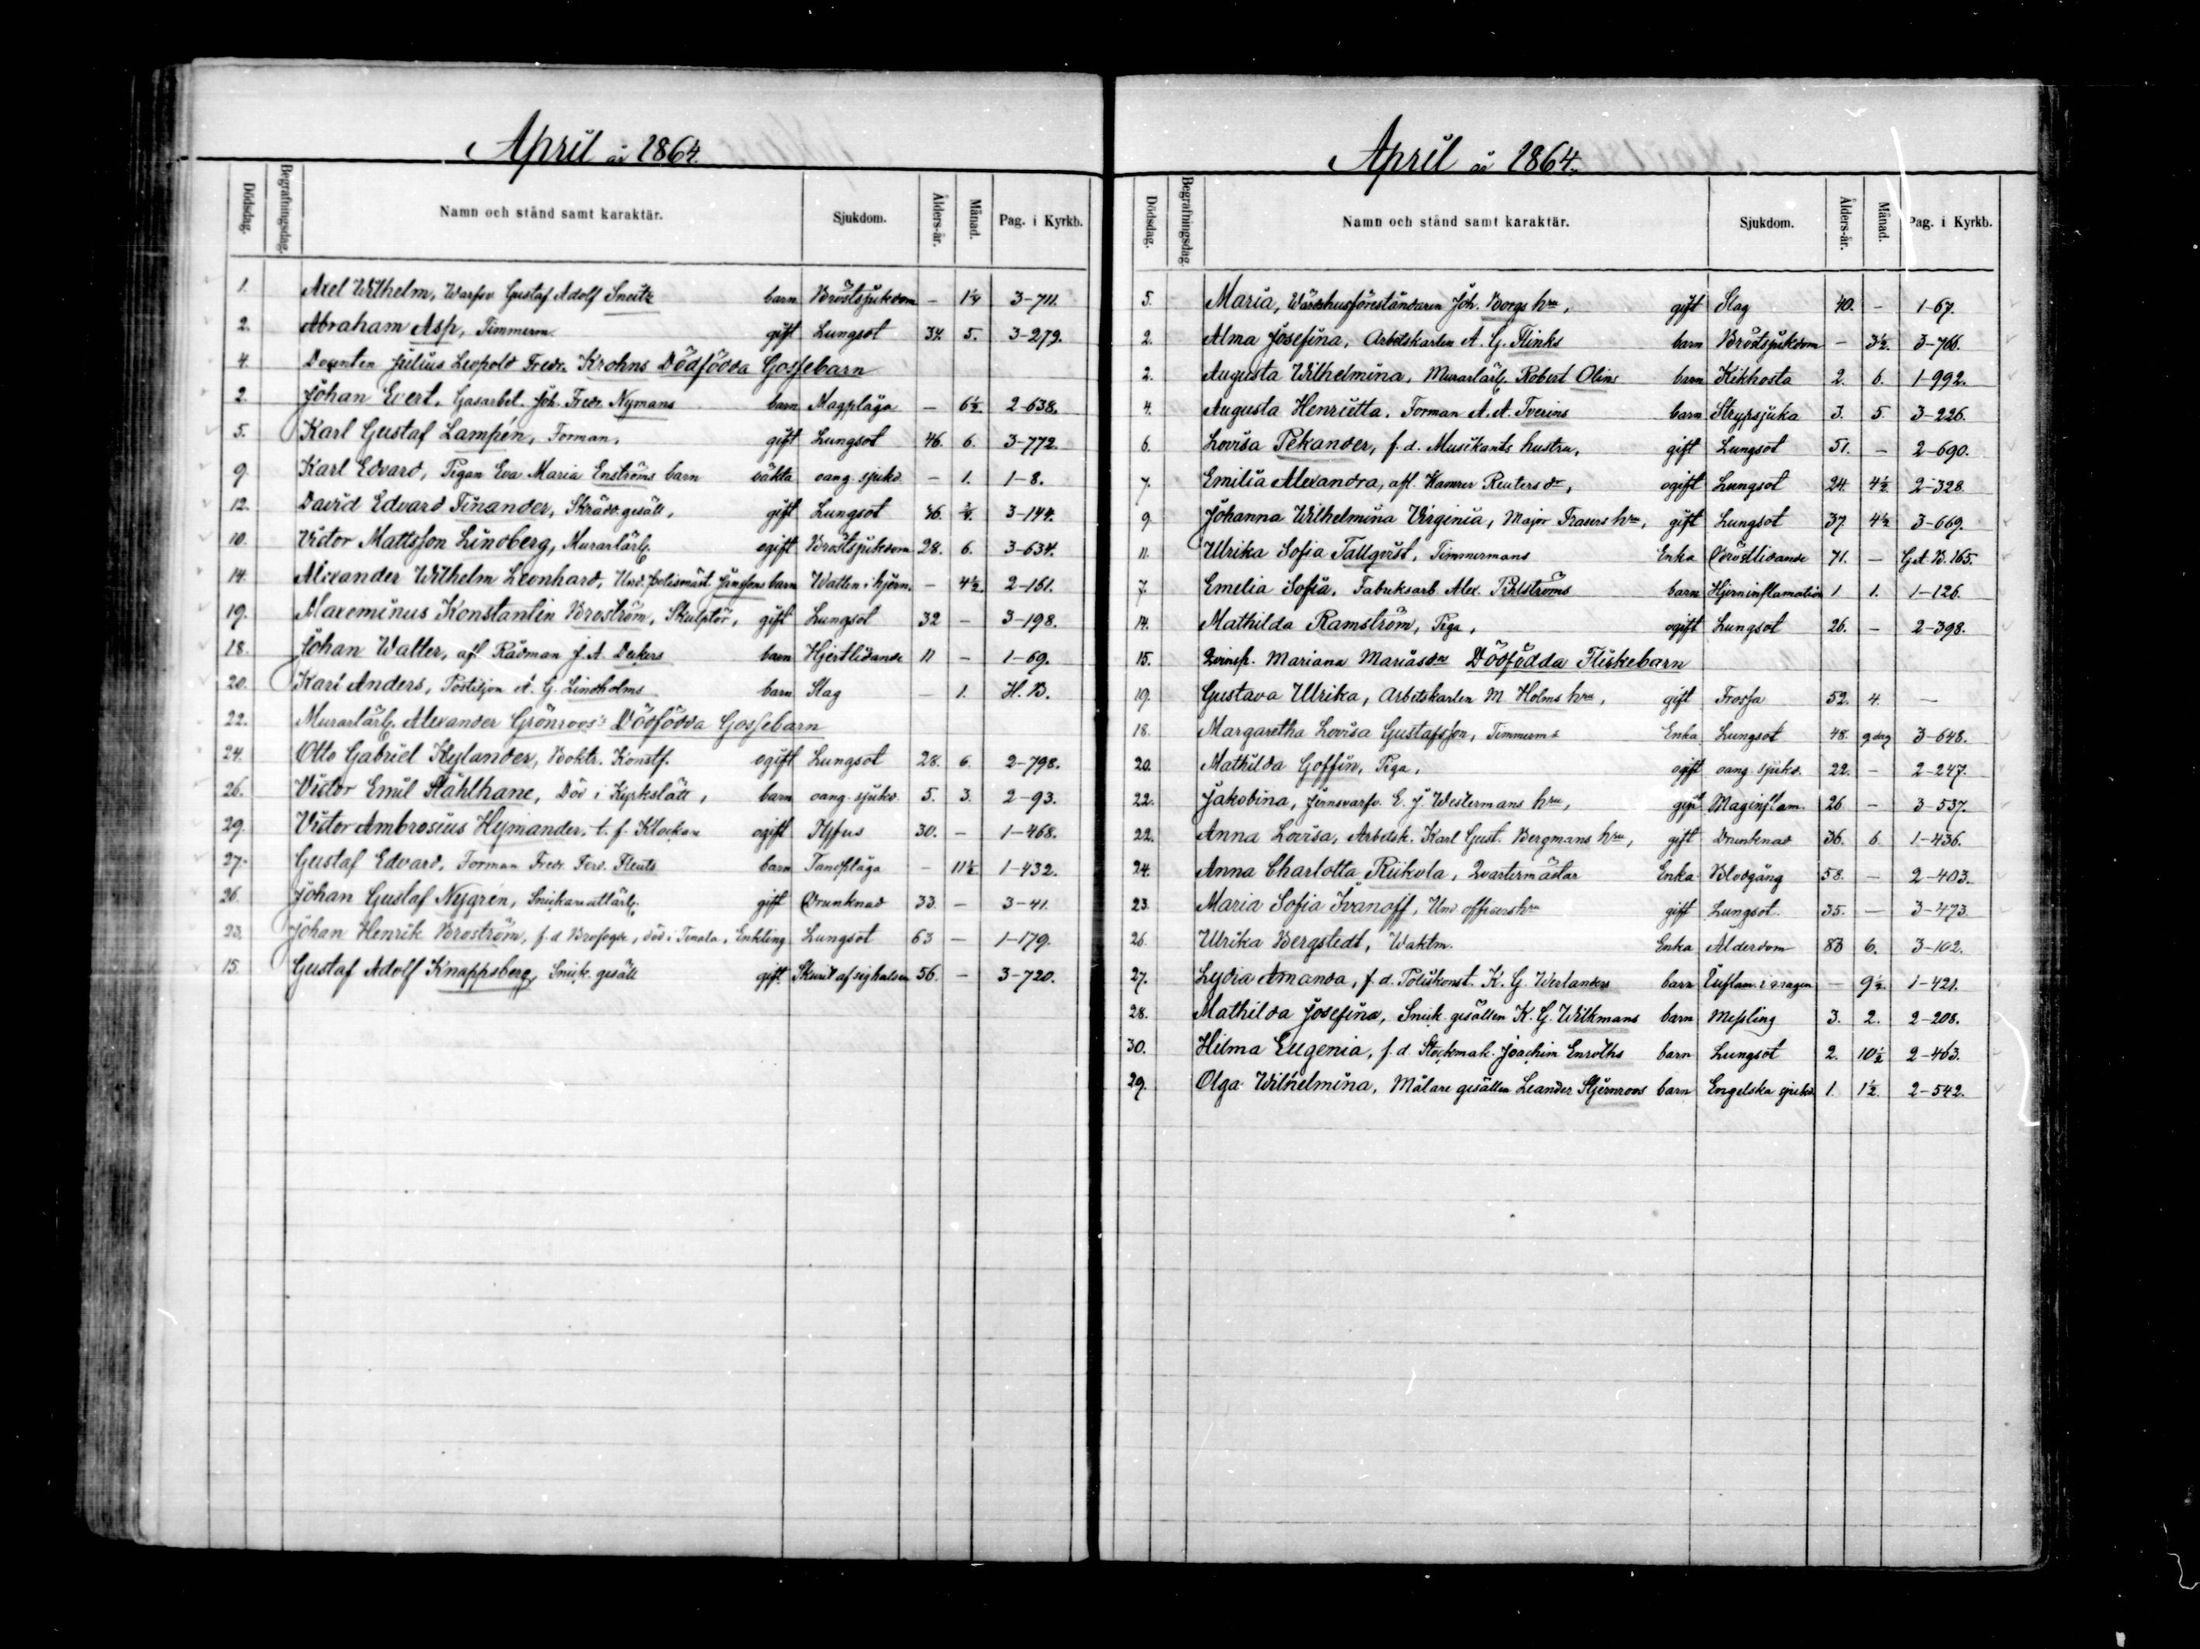 April år 1864.
Dödsdag. Begrafningsdag. Namn och stånd samt karaktär. Sjukdom. Ålders-år. Månad. Pag. i Kyrkb.
1. Axel Wilhelm, Warfsv Gustaf Adolf Sneitz barn Bröstsjukdom — 1¼ 3-711.
2. Abraham Asp, Timmerm. gift Lungsot 34. 5. 3-279.
4. Docenten Julius Leopold Fredr. Krohns Dödfödda Gossebarn
2. Johan Evert, Gasarbet. Joh. Fredr. Nymans barn Magplåga — 6½. 2-638.
5. Karl Gustaf Lampén, Forman, gift Lungsot 46. 6. 3-772.
9. Karl Edvard, Pigan Eva Maria Enströms barn oäkta oang. sjukd. — 1. 1-8.
12. David Edvard Finander, Skrädd. gesäll, gift Lungsot 36. 3-144.
10. Victor Mattsson Lindberg, Murarlärl. ogift Bröstsjukdom 28. 6. 3-634.
14. Alexander Wilhelm Leonhard, Und. polismäst. Jansons barn Watten i hjern. — 4½. 2-161.
19. Maxeminus Konstantin Broström, Skulptör, gift Lungsot 32 — 3-198.
18. Johan Walter, afl Rådman J. A. Deckers barn Hjertlidande 11 — 1-69.
20. Karl Anders, Postiljon A. G. Lindholms barn Slag — 1. H. B.
22. Murarlärl. Alexander Grönroos's Dödfödda Gossebarn
24. Otto Gabriel Kylander, Boktr. Konstf. ogift Lungsot 28. 6. 2-798.
26. Victor Emil Stålhane, Död i Kyrkslätt, barn oang. sjukd. 5. 3. 2-93.
29. Victor Ambrosius Heimander, t. f. Klockare ogift Tyfus 30. — 1-468.
27. Gustaf Edvard, Forman Fredr Ferd. barn Tandplåga — 11½ 1-432.
26. Johan Gustaf Nygrén, gift Drunknad 33. — 3-41.
23. Johan Henrik Broström, f.d. Brofogde, död i Tenala, Enkling Lungsot 63 — 1-179.
15. Gustaf Adolf Knappsberg, Snick. gesäll gift. Skurit af sig halsen 56. — 3-720.
April år 1864.
Dödsdag. Begrafningsdag. Namn och stånd samt karaktär. Sjukdom. Ålders-år. Månad. Pag. i Kyrkb.
5. Maria, Wärdshusföreståndaren Joh. Borgs hru, gift Slag 40. — 1-67.
2. Alma Josefina, Arbetskarlen A. G. Flinks barn Bröstsjukdom — 3½. 3-766.
2. Augusta Wilhelmina, Murarlärl. Robert Olins barn Kikhosta 2. 6. 1-992.
4. Augusta Henrietta, Forman A. A. Tverins barn Strypsjuka 3. 5. 3-226.
6. Lovisa Pekander, f.d. Musikants hustru, gift Lungsot 51. — 2-690.
7. Emilia Alexandra, afl. Kamrer Reuters dr, ogift Lungsot 24. 4½ 2-328.
9. Johanna Wilhelmina Virginia, Major Frasers hru, gift Lungsot 37. 4½ 3-669.
11. Ulrika Sofia Tallqvist, Timmermans Enka Bröstlidande 71. — G.A.B. 165.
7. Emelia Sofia, Fabriksarb. Alex. Pihlströms barn Hjerninflamation 1 1. 1-126.
14. Mathilda Ramström, Piga, ogift Lungsot 26. — 2-398.
15. Qvinsp. Mariana Mariasdr Dödfödda Flickebarn
19. Gustava Ulrika, Arbetskarlen M Holms hru, gift Frossa 52. 4. —
18. Margaretha Lovisa Gustafsson, Timmerms Enka Lungsot 48. 9 dag 3-648.
20. Mathilda Goffin, Piga, ogift oang. sjukd. 22. — 2-247.
22. Jakobina, Jernsvarfv. E. J. Westermans hru, gift Maginflam. 26 — 3-537.
22. Anna Lovisa, Arbetsk. Karl Gust. Bergmans hru, gift Drunknad 36. 6. 1-436.
24. Anna Charlotta Riikola, Qvartermästar Enka Blodgång 58. — 2-403.
23. Maria Sofia Ivanoff, Und officers hru gift Lungsot. 35. — 3-473.
26. Ulrika Bergstedt, Waktm. Enka Ålderdom 83 6. 3-102.
27. Lydia Amanda, f.d. Poliskonst. K. G. Werlanders barn Inflam. i magen — 9½. 1-421.
28. Mathilda Josefina, Snick. gesällen K. G. Wilkmans barn Messling 3. 2. 2-208.
30. Hilma Eugenia, f.d. Stockmak. Joachim Enroths barn Lungsot 2. 10½ 2-463.
29. Olga Wilhelmina, Målare gesällen Leander Stjernroos barn Engelska sjukd. 1. 1½. 2-542.